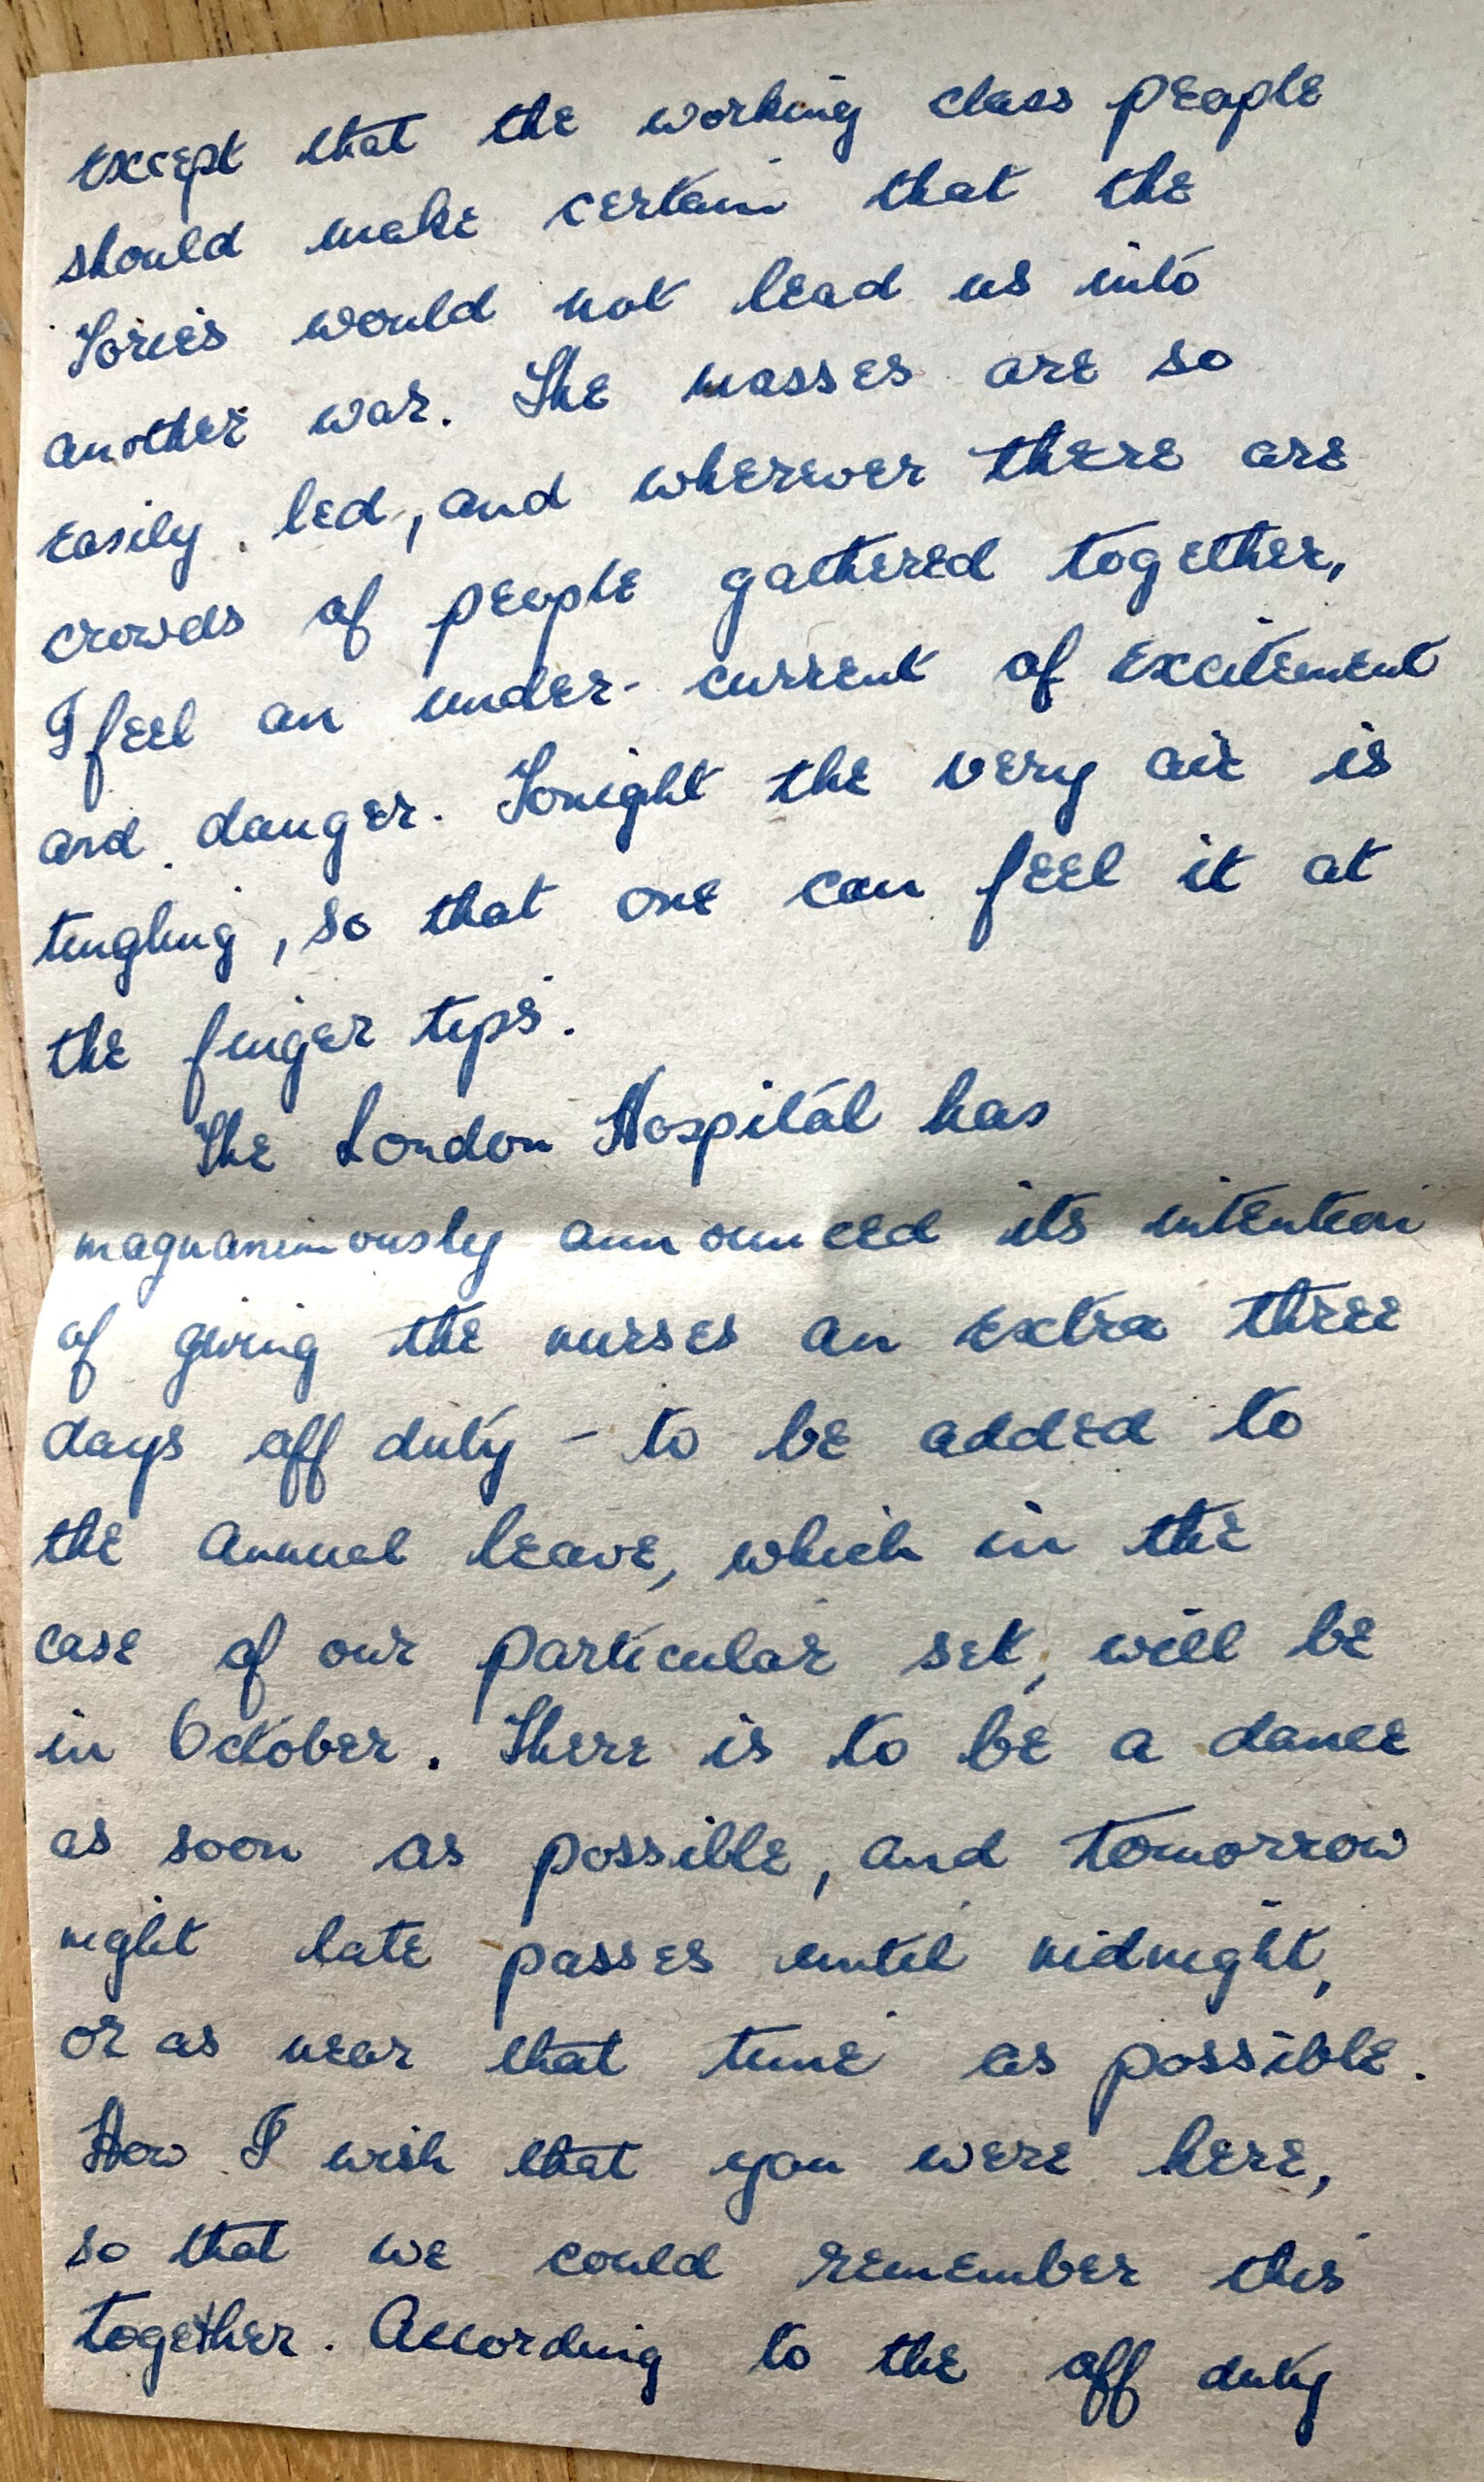 except that the working class people
should make certain that the
Tories would not lead us into
another war. The masses are so
easily led, and wherever there are
crowds of people gathered together,
I feel an under-current of excitement
and danger. Tonight the very air is
tingling, so that one can feel it at
the finger tips.
The London Hospital has
magnanimously announced its intention
of giving the nurses an extra three
days off duty - to be added to
the annual leave, which in the
case of our particular set, will be
in October. There is to be a dance
as soon as possible, and tomorrow
night late passes until midnight,
or as near that time as possible.
How I wish that you were here,
so that we could remember this
together. According to the off duty